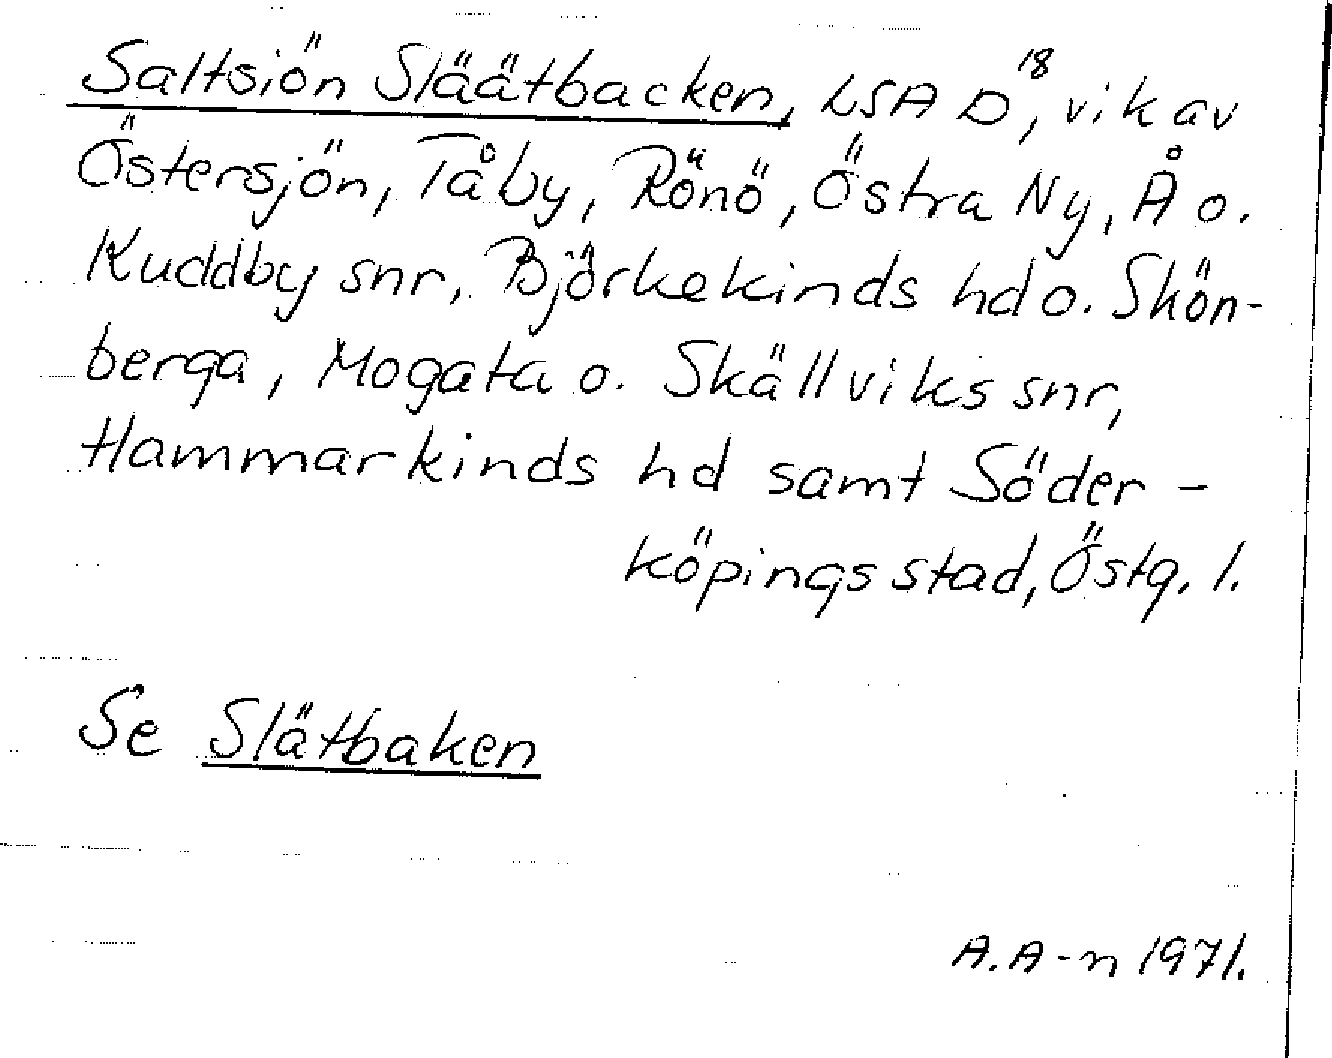 Saltsiön Släätbacken, LSA D18, vik av
Östersjön, Tåby, Rönö, Östra Ny, Å o.
Kuddby snr, Björkekinds hd o. Skön-
berga, Mogata o. Skällviks snr,
Hammarkinds hd samt Söder-
köpings stad, Östg. l.
Se Slätbaken
A.A-n 1971.